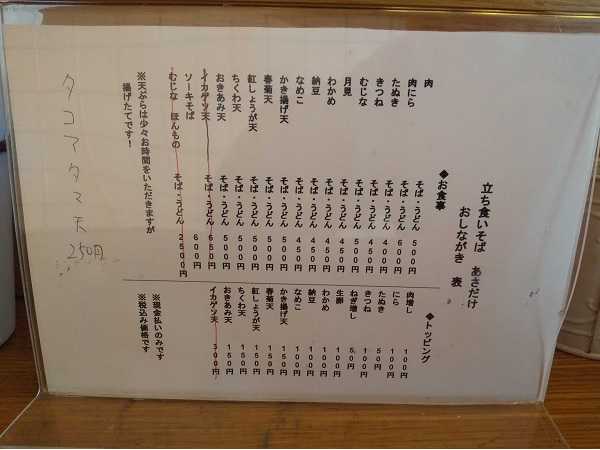 立ち食いそば あさだけ
おしながき 表
◆お食事
肉 そば・うどん 500円
肉にら そば・うどん 600円
たぬき そば・うどん 400円
きつね そば・うどん 450円
むじな そば・うどん 500円
月見 そば・うどん 450円
わかめ そば・うどん 450円
納豆 そば・うどん 450円
なめこ そば・うどん 450円
かき揚げ天 そば・うどん 500円
春菊天 そば・うどん 500円
紅しょうが天 そば・うどん 500円
ちくわ天 そば・うどん 500円
おきあみ天 そば・うどん 500円
イカゲソ天 そば・うどん 650円
ソーキそば 600円
むじな ほんもの そば・うどん 2500円
※天ぷらは少々お時間をいただきますが
揚げたてです!
タコアタマ天 250円
◆トッピング
肉増し 100円
にら 100円
たぬき 50円
きつね 100円
ねぎ増し 50円
生卵 100円
わかめ 100円
納豆 100円
なめこ 100円
かき揚げ天 150円
春菊天 150円
紅しょうが天 150円
ちくわ天 150円
おきあみ天 150円
イカゲソ天 300円
※現金払いのみです
※税込み価格です